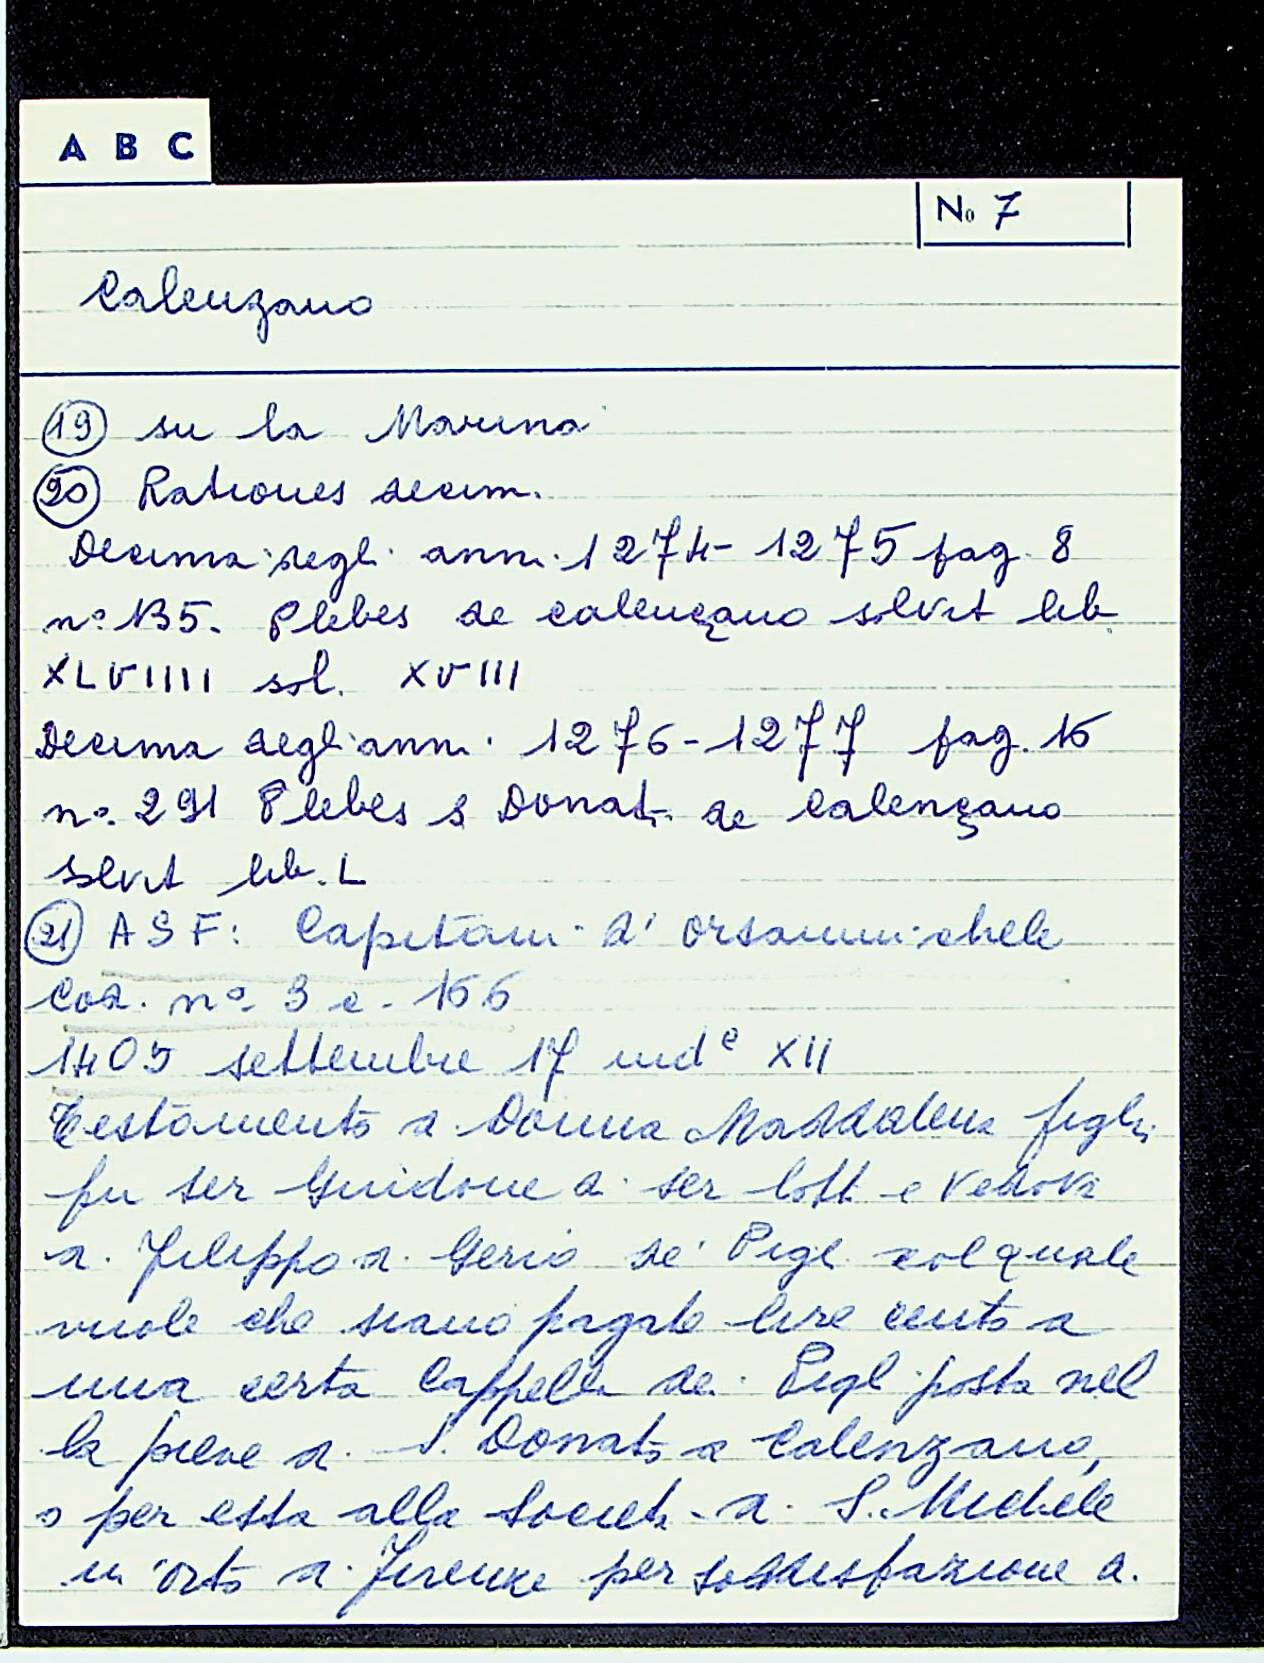 A B C
No 7
Calenzano
19 su la Marina
20 Rationes decim.
Decima degli anni 1274-1275 pag. 8
n° 135. Plebes de calençano solvit lib.
XLVIIII sol. XVIII
Decima degli anni 1276-1277 pag. 16
n°. 291 Plebes S Donati de Calençano
solvit lib. L
21 ASF: Capitani d'Orsanmichele
Cod. n° 3 c. 166
1405 settembre 17 ind.e XII
Testamento di Donna Maddalena figli
fu ser Guidone di ser Lotti e vedova
di Filippo di Gerio de' Pigli col quale
vuole che siano pagate lire cento a
una certa Cappella dei Pigli posta nel
la pieve di S. Donato a Calenzano,
o per essa alla Società di S. Michele
in Orto di Firenze per soddisfazione di